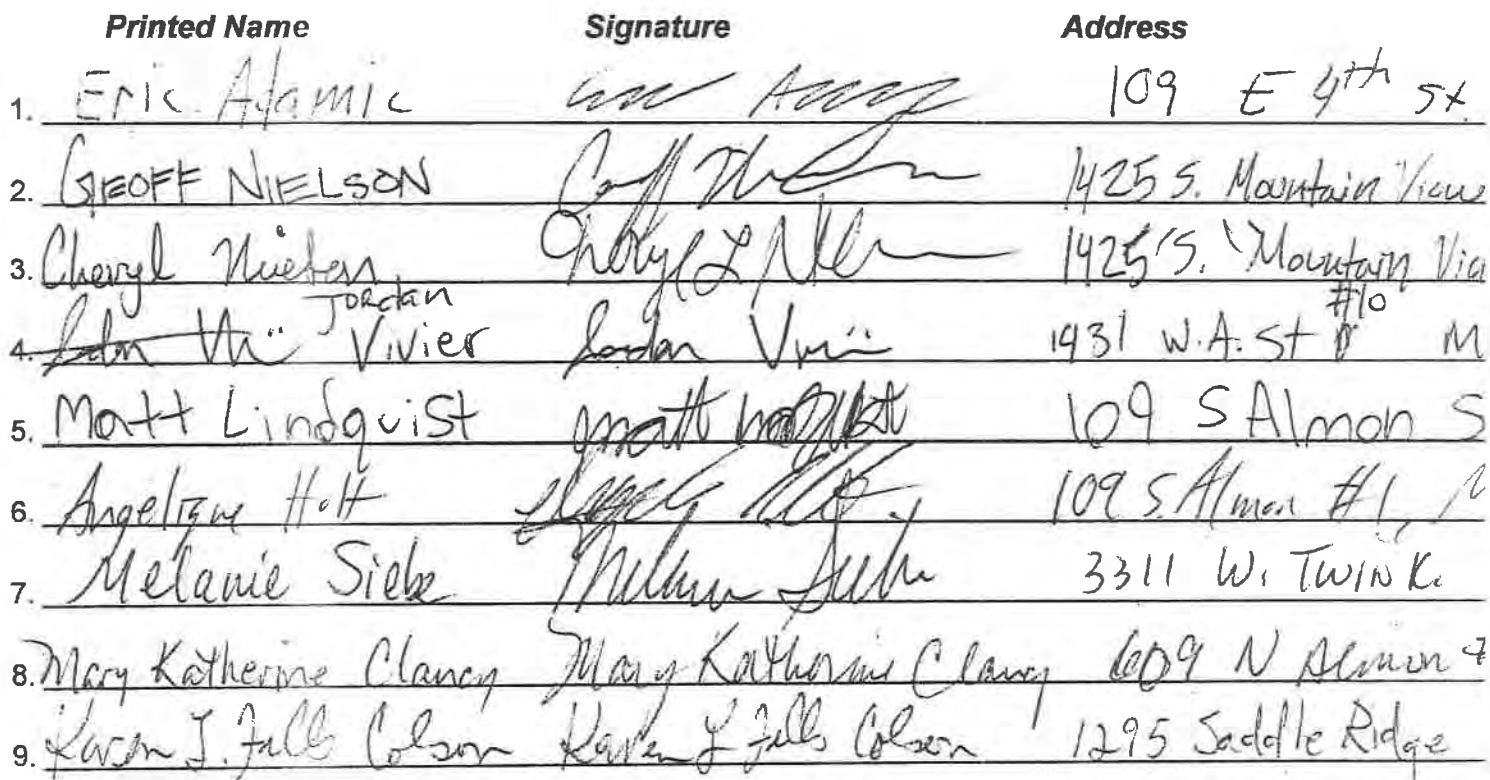 Printed Name Signature Address
1. Eric Adamic 109 E 9th St
2. GEOFF NIELSON 1425 S. Mountain View
3. Cheryl 1425 S. Mountain Vie
Jordan #10
4. Vivier Jordan 1431 W. A. St M
5. Matt Lindquist matt 109 S Almon S
6. Angelique Holt 109 S. Almon #1,
7. Melanie Siebe 3311 W. TWIN K.
8. Mary Katherine Clancy Mary Katherine Clancy 609 N Almon #
9. Karen J. Falls Colson Karen J Falls Colson 1295 Saddle Ridge